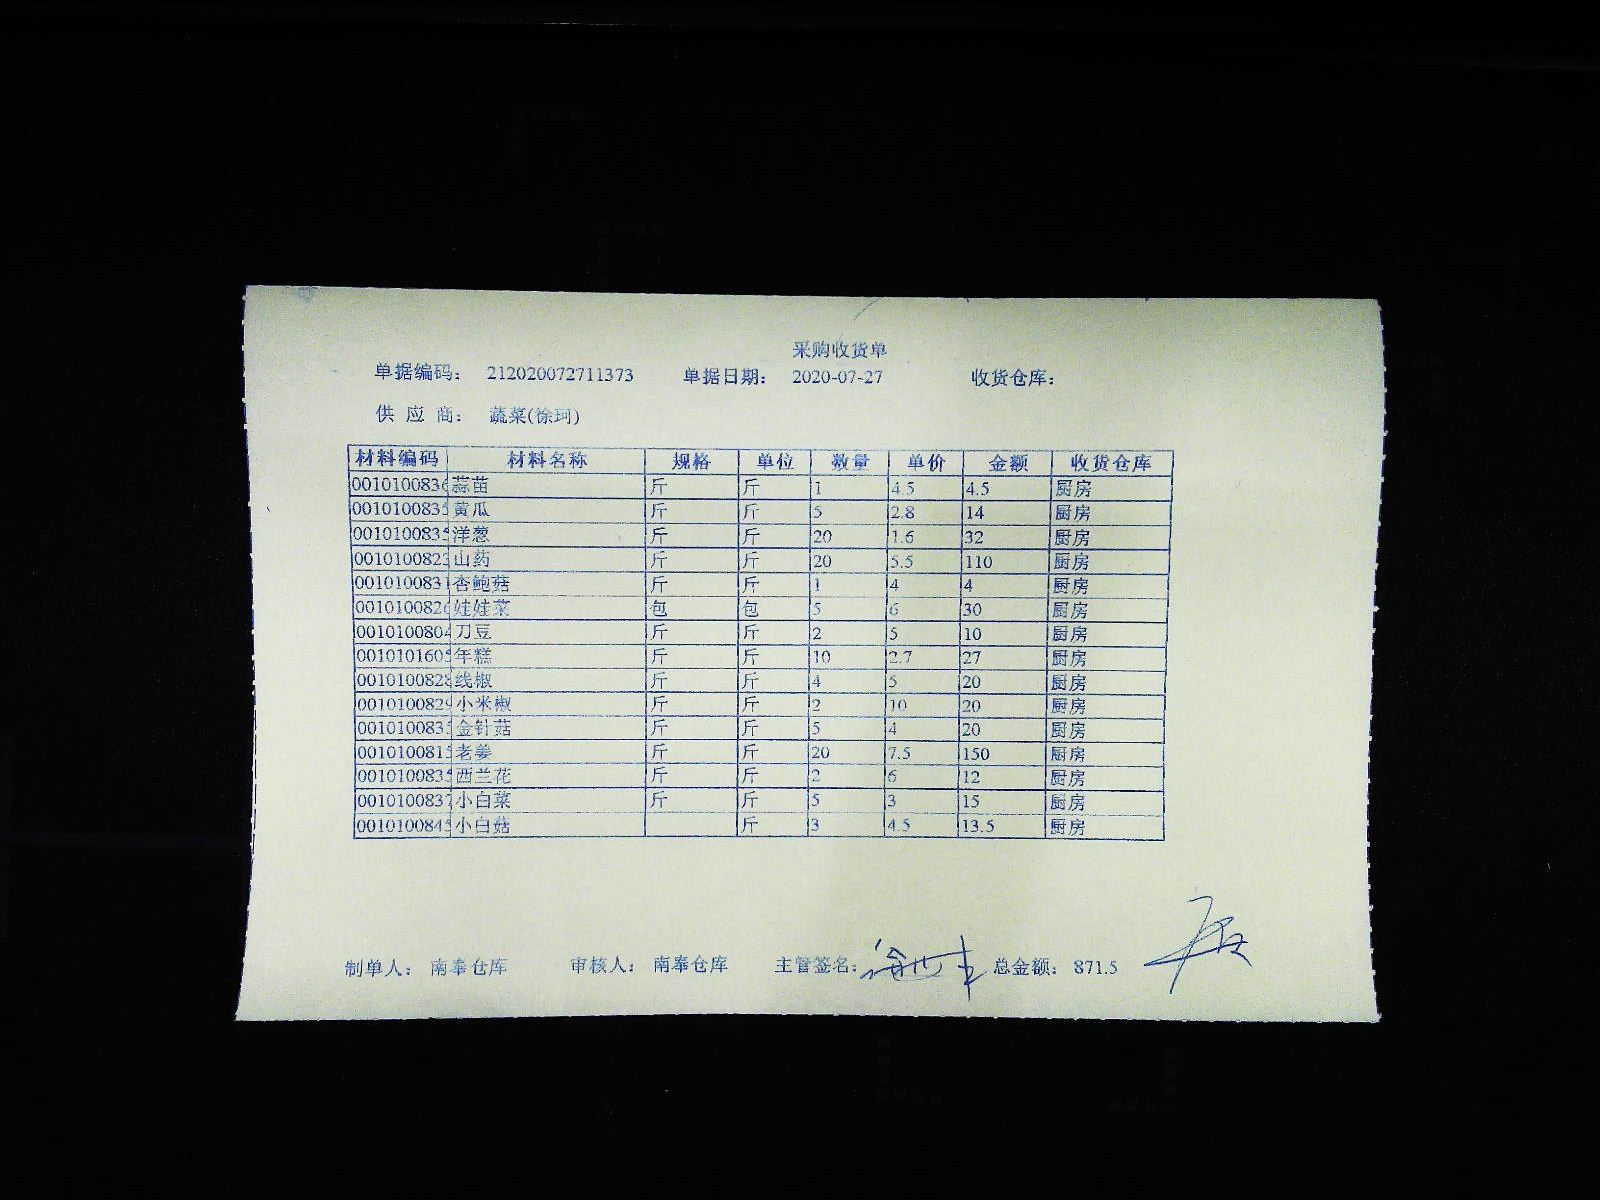 采购收货单
单据编码： 212020072711373 单据日期： 2020-07-27 收货仓库：
供 应 商： 蔬菜(徐珂)
材料编码 材料名称 规格 单位 数量 单价 金额 收货仓库
001010083 蒜苗 斤 斤 1 4.5 4.5 厨房
001010083 黄瓜 斤 斤 5 2.8 14 厨房
001010083 洋葱 斤 斤 20 1.6 32 厨房
001010082 山药 斤 斤 20 5.5 110 厨房
001010083 杏鲍菇 斤 斤 1 4 4 厨房
001010082 娃娃菜 包 包 5 6 30 厨房
001010080 刀豆 斤 斤 2 5 10 厨房
001010160 年糕 斤 斤 10 2.7 27 厨房
001010082 线椒 斤 斤 4 5 20 厨房
001010082 小米椒 斤 斤 2 10 20 厨房
001010083 金针菇 斤 斤 5 4 20 厨房
001010081 老姜 斤 斤 20 7.5 150 厨房
001010083 西兰花 斤 斤 2 6 12 厨房
001010083 小白菜 斤 斤 5 3 15 厨房
001010084 小白菇 斤 3 4.5 13.5 厨房
制单人： 南奉仓库 审核人： 南奉仓库 主管签名： 总金额： 871.5